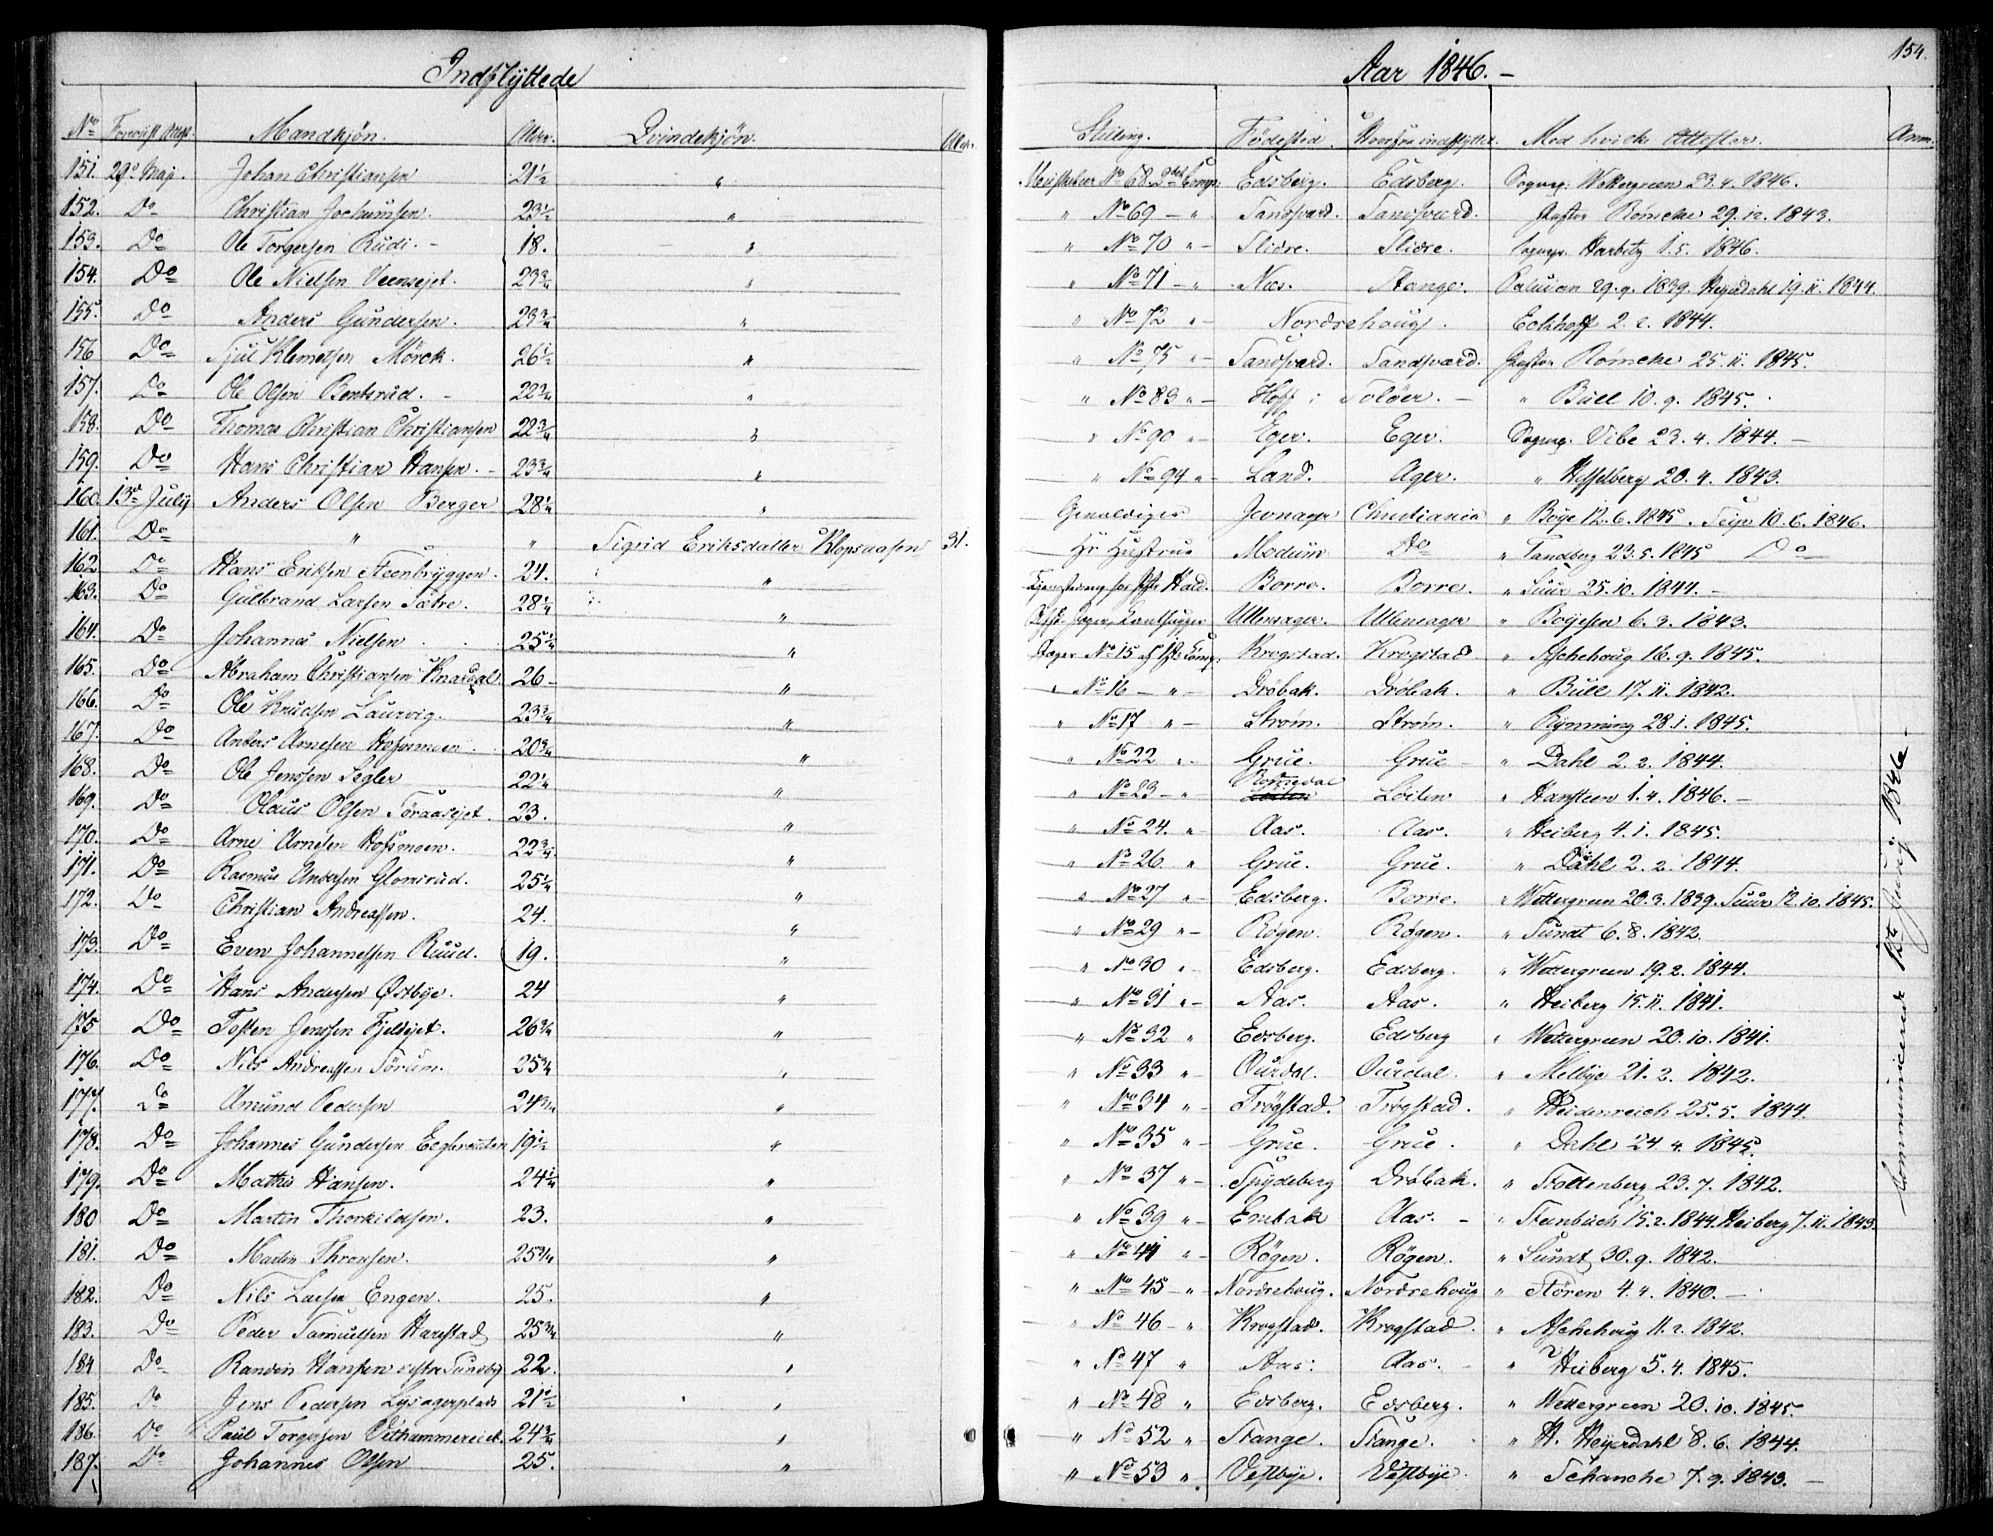 154.
Indflyttede Aar 1846. –
No Foreviist Attest. Mandkjön. Alder. Qvindekjön. Alder. Stilling. Födested. Hvorfra indflyttet. Med hvilke Attester. Anm.
151. 29de Maj. Johan Christiansen 21½ " No 68. 2det Comp: Edsberg. Edsberg. Sognep. Wettergreen 23.4.1846.
152. Do Christian Jochumsen. 23½ " " No 69 – " Sandsværd. Sandsværd. Pastor Römcke 29.12.1843.
153. Do Ole Torgersen Rudi. – 18. " " No 70 " – Slidre. Slidre. Sognep. Harbitz 1.5.1846.
154. Do Ole Nielsen 23¾ " " No 71 – " Næs. Stange. Paludan 29.9.1839. Heyerdahl 19.11.1844.
155. Do Anders Gundersen. 23¾ " " No 72 " – Nordrehoug. Eckhoff 2.2.1844.
156 Do Klemetsen Mörck. 26½ " " No 75 " – Sandsværd. Sandsværd. Pastor Römcke 25.11.1845.
157. Do Ole Olsen Bentsrud. – 22¾ " " No 83 " – Hoff i Solöer. – " Bull 10.9.1845.
158. Do Thomas Christian Christiansen 22¾ " " No 90 " – Eger. Eger. Sognep. Vibe 23.4.1844. –
159. Do Hans Christian Hansen. – 23¾ " " No 94 " – Land. Ager. " Hesselberg 20.4.1843.
160. 13de July Anders Olsen Berger 28¼ " Gevaldiger Jevnager Christiania " Böye 12.6.1845. 10.6.1846.
161. Do " " Sigrid Eriksdatter 31. Hs Hustrue Modum Do " Tandberg 23.5.1845 Do
162 Do Hans Eriksen Steenbryggen. 24. " Borre. Borre. " Suur 25.10.1844. –
163. Do Gulbrand Larsen Sætre. 28¼ " Ullensager. Ullensager " Boyesen 6.3.1843.
164. Do Johannes Nielsen 25¼ " Jæger No 15 af 1ste Comp: Krogstad. Krogstad " Aschehoug 16.9.1845.
165. Do Abraham Christiansen Knardal. 26 – " " No 16 – " – Dröbak. Dröbak. " Bull 17.11.1842.
166. Do Ole Knudsen Laurvig. 23¾ " " No 17 " – Ström. Ström. " Rynning 28.1.1845.
167. Do Anders Arnesen Hofsmoen 20¾ " " No 22 " – Grue. Grue " Dahl 2.2.1844.
168. Do Ole Jenssen Segler 22¼ " " No 23 – " Romedal Löiten " Hansteen 1.4.1846. –
169. Do Olaus Olsen 23. " " No 24. " Aas. Aas. " Heiberg 4.1.1845.
170. Do Arne Arnesen Hofsmoen. 22¾ " " No 26 " Grue. Grue. " Dahl 2.2.1844.
171. Do Rasmus Andersen Glomsrud. 25½ " " No 27 " – Edsberg. Borre. " Wettergreen 20.3.1839. Suur 12.10.1845.
172. Do Christian Andreassen. 24. " " No 29 " – Rögen. Rögen. " Sundt 6.8.1842.
173. Do Even Johannessen Ruud. 19. " " No 30 " Edsberg. Edsberg. " Wettergreen 19.2.1844.
174. Do Hans Andersen Östbye. 24 " " No 31 " – Aas. Aas. " Heiberg 15.11.1841.
175 Do Tosten Jenssen Fjeldsjet. 26¾ " " No 32 " Edsberg. Edsberg " Wettergreen 20.10.1841.
176. Do Nils Andreassen Sörum. 25¾ " " No 33 " – Ourdal. Ourdal. " Melbye 21.2.1842.
177. Do Amund Pedersen 24¾ " " No 34 " – Trögstad. Trögstad. " Heidenreich 25.5.1844.
178. Do Johannes Gundersen 19½ " " No 35 " – Grue. Grue. " Dahl 24.4.1845.
179. Do Mathis Hansen. 24¼ " " No 37 " – Spydeberg Dröbak. " Stoltenberg 23.7.1842.
180 Do Martin Thorkildsen. 23. " " No 39 " – Enebak Aas. – " Steenbuch 15.2.1844. Heiberg 7.11.1843.
181. Do Martin Thronsen. 25¾ " " No 44 " – Rögen. Rögen. " Sundt 30.9.1842.
182. Do Nils Larsen Engen. 25. " " No 45 – " Nordrehoug. Nordrehoug " Stören 4.4.1840. –
183. Do Peder Samuelsen Harestad 25¾ " " No 46 " – Krogstad. Krogstad. " Aschehoug 11.2.1842.
184 Do Hansen Sundby 22. " " No 47 " Aas. Aas. – " Heiberg 5.4.1845.
185. Do Jens Pedersen 21½ " " No 48 " Edsberg. Edsberg. " Wettergreen 20.10.1845.
186. Do Paul Torgersen 24¾ " " No 52 " Stange. Stange. " H. Heyerdahl 8.6.1844.
187. Do Johannes Olsen 25. " " No 53 " Vestbye. Vestbye. " Schanche 7.9.1843. –
Communiceret 15de July 1846 –